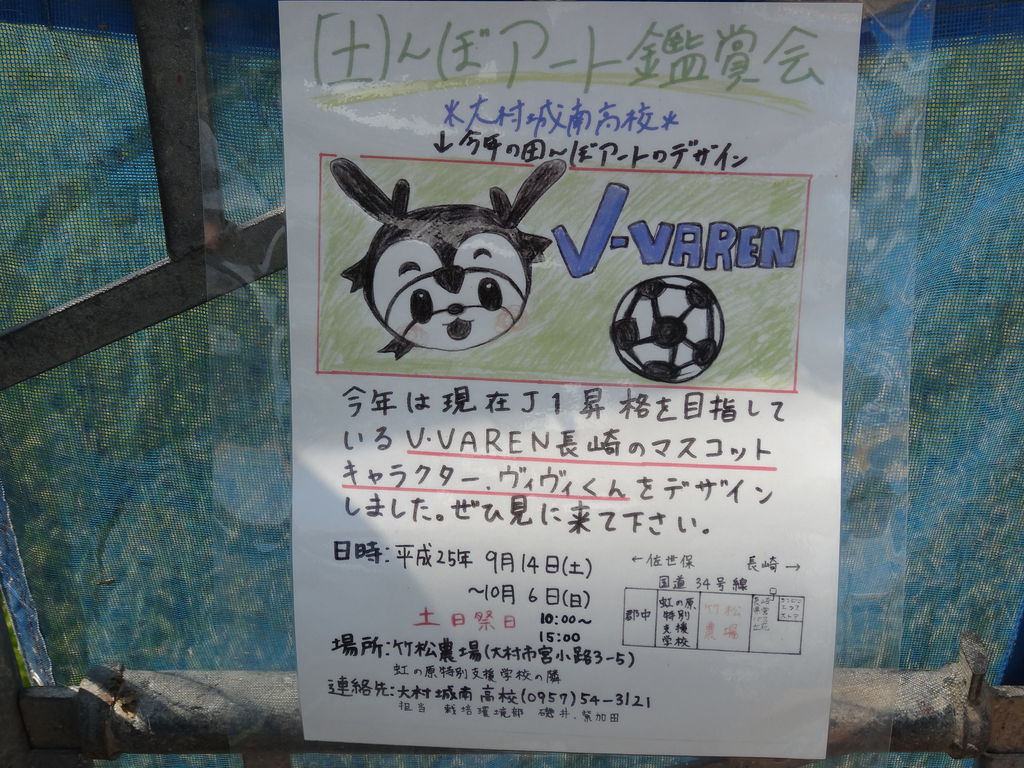 (土)んぼアート鑑賞会
*大村城南高校*
↓今年の田〜ぼアートのデザイン
V-VAREN
今年は現在J1昇格を目指して
いるV・VAREN長崎のマスコット
キャラクター、ヴィヴィくんをデザイン
しました。ぜひ見に来て下さい。
日時:平成25年 9月14日(土)
〜10月 6日(日)
土日祭日 10:00〜
15:00
←佐世保 長崎→
国道 34号線
郡中
虹の原
特別
支援
学校
竹松
農場
場所:竹松農場(大村市宮小路3-5)
虹の原特別支援学校の隣
連絡先:大村城南高校(0957)54-3121
担当 栽培環境部 磯井、紫加田